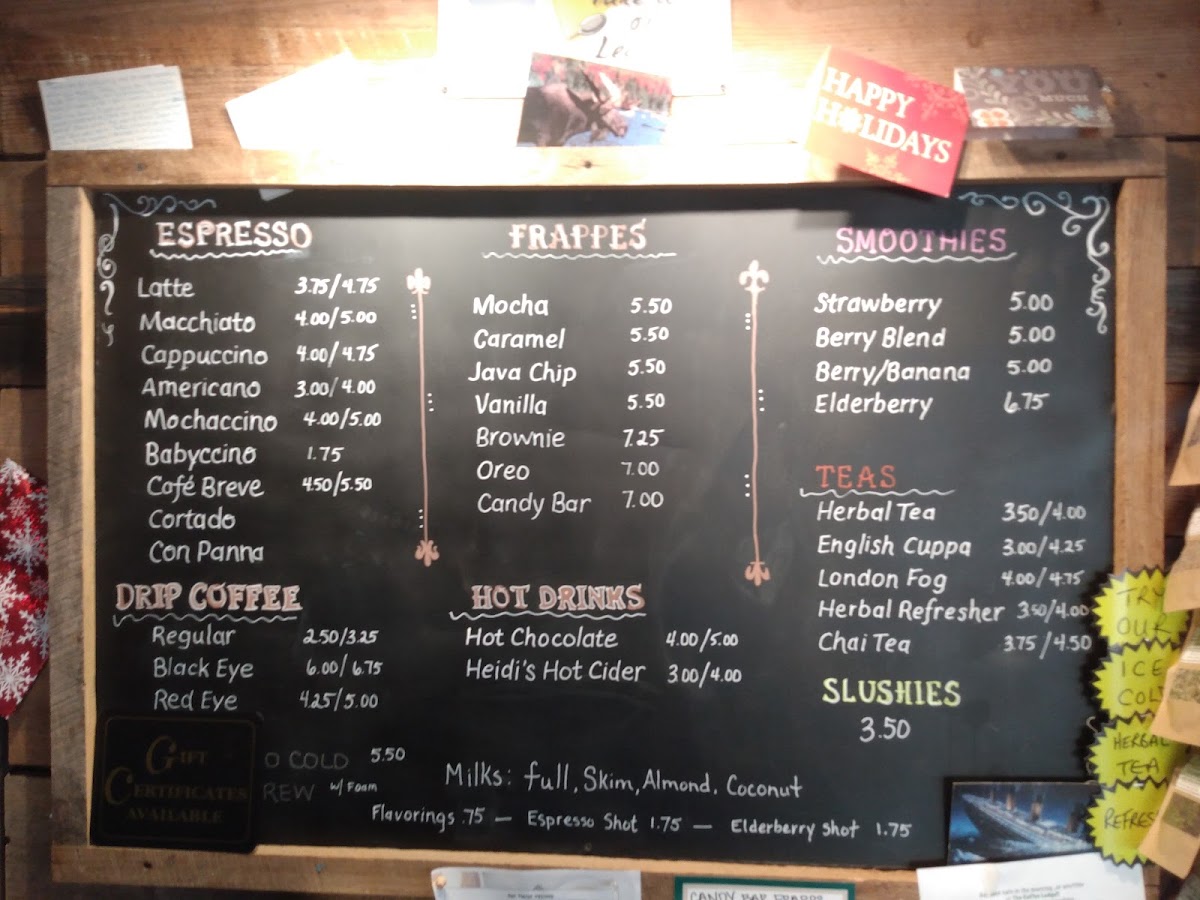 HAPPY
HOLIDAYS
YOU
MUCH
ESPRESSO
Latte 3.75/4.75
Macchiato 4.00/5.00
Cappuccino 4.00/4.75
Americano 3.00/4.00
Mochaccino 4.00/5.00
Babyccino 1.75
Café Breve 4.50/5.50
Cortado
Con Panna
DRIP COFFEE
Regular 2.50/3.25
Black Eye 6.00/6.75
Red Eye 4.25/5.00
GIFT
CERTIFICATES
AVAILABLE
O COLD 5.50
REW w/ Foam
FRAPPES
Mocha 5.50
Caramel 5.50
Java Chip 5.50
Vanilla 5.50
Brownie 7.25
Oreo 7.00
Candy Bar 7.00
HOT DRINKS
Hot Chocolate 4.00/5.00
Heidi's Hot Cider 3.00/4.00
SMOOTHIES
Strawberry 5.00
Berry Blend 5.00
Berry/Banana 5.00
Elderberry 6.75
TEAS
Herbal Tea 3.50/4.00
English Cuppa 3.00/4.25
London Fog 4.00/4.75
Herbal Refresher 3.50/4.00
Chai Tea 3.75/4.50
SLUSHIES
3.50
Milks: full, Skim, Almond, Coconut
Flavorings .75 — Espresso Shot 1.75 — Elderberry Shot 1.75
TRY
OUR
ICE
COLD
HERBAL
TEA
REFRES
CANDY BAR FRAPPS